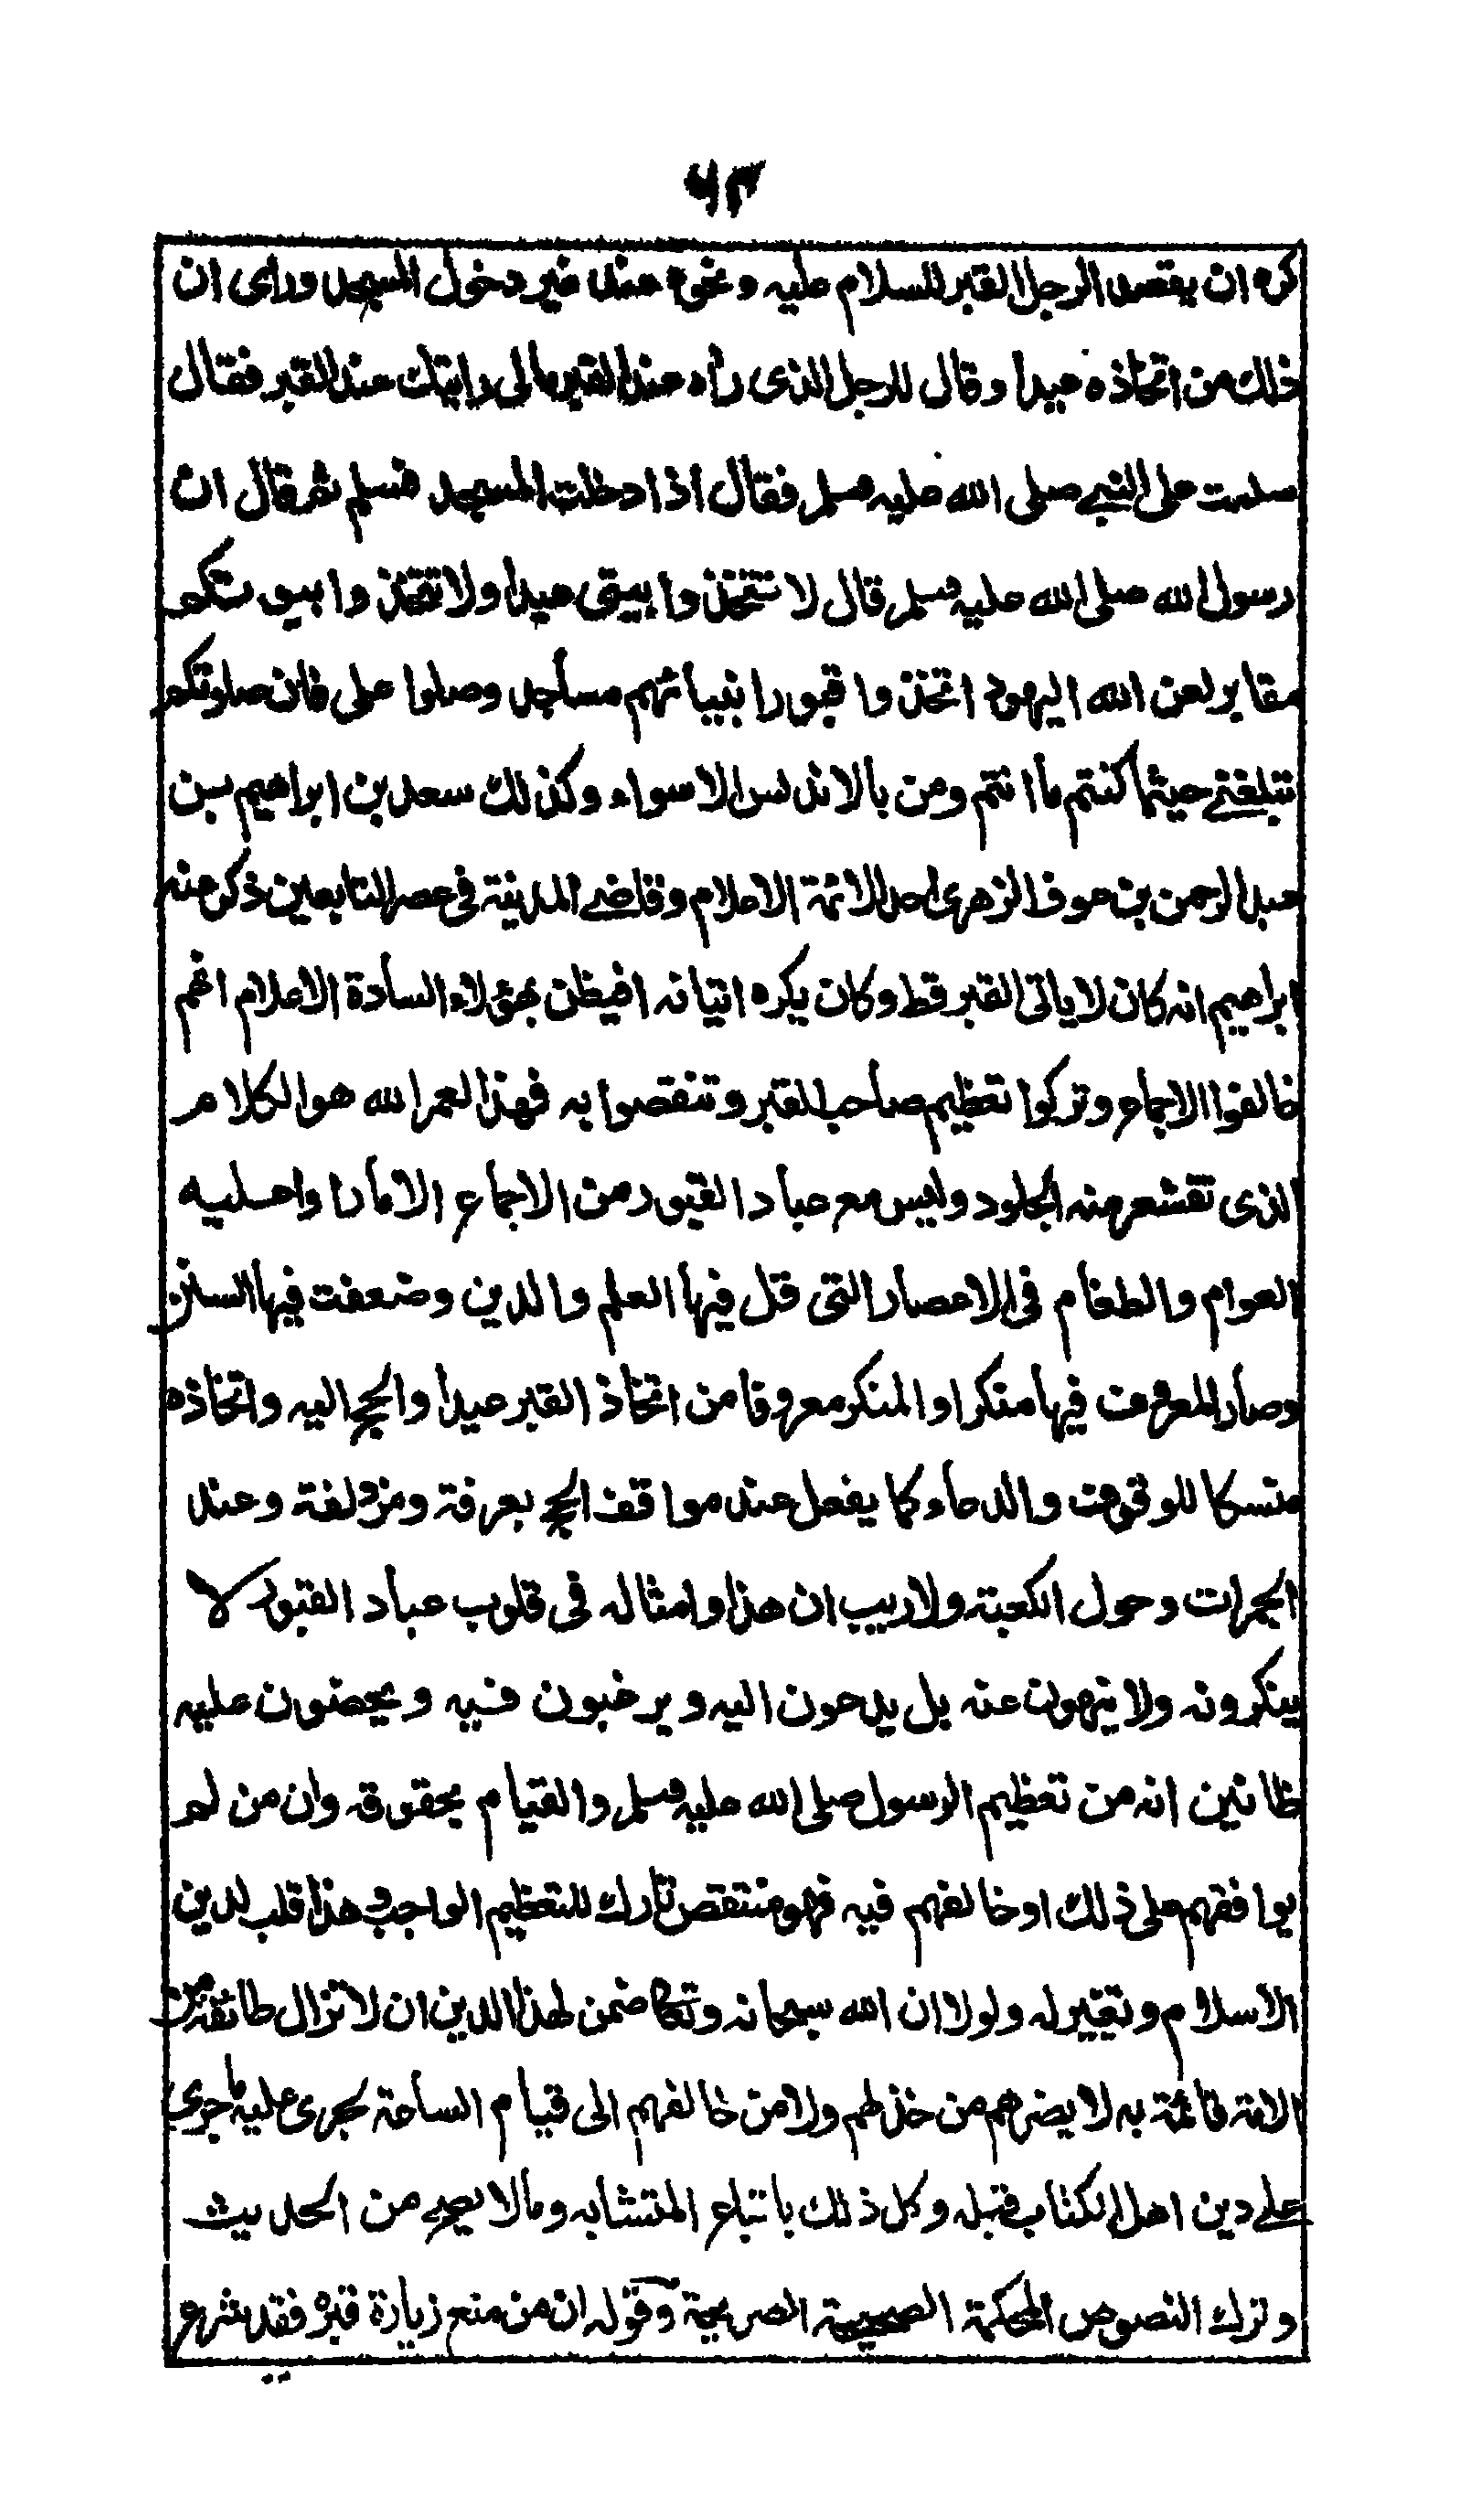 ٦٣
كره ان يقصد الرجل القبر للسلام عليه ونحوه عند غير دخول المسجد ورأى ان
ذلك من اتخاذه عيدا وقال للرجل الذى رأه عند القبر مالى رايتك عند القبر فقال
سلمت على النبي صلى الله عليه وسلم فقال اذا دخلت المسجد فسلم ثم قال ان
رسول الله صلى الله عليه وسلم قال لا تتخذوا بيتى عيدا ولا تتخذوا بيوتكم
مقابر لعن الله اليهود اتخذوا قبور انبيائهم مساجد وصلوا على فان صلوتكم
تبلغني حيثما كنتم ما انتم ومن بالاندلس الا سواء وكذلك سعد بن ابراهيم بن
عبد الرحمن بن عوف الزهرى احد الائمة الاعلام وقاضي المدينة فى عصر التابعين ذكر عنه
ابراهيم انه كان لا ياتى القبر قط وكان يكره اتيانه افيظن بهؤلاء السادة الاعلام انهم
خالفوا الاجماع وتركوا تعظيم صاحب القبر وتنقصوا به فهذا لعمر الله هو الكلام
الذى تقشعر منه الجلود وليس مع عباد القبور من الاجماع الا ما رأوا عليه
العوام والطغام فى الاعصار التى قل فيها العلم والدين وضعفت فيها السنن
وصار المعروف فيها منكرا والمنكر معروفا من اتخاذ القبر عيدا والحج اليه واتخاذه
منسكا للوقوف والدعاء كما يفعل عند مواقف الحج بعرفة ومزدلفة وعند
الجمرات وحول الكعبة ولا ريب ان هذا وامثاله فى قلوب عباد القبور لا
ينكرونه ولا ينهون عنه بل يدعون اليه ويرغبون فيه ويحضون عليه
ظانين انه من تعظيم الرسول صلى الله عليه وسلم والقيام بحقوقه وان من لم
يوافقهم على ذلك او خالفهم فيه فهو منتقص تارك للتعظيم الواجب وهذا قلب لدين
الاسلام وتغيير له ولولا ان الله سبحانه وتعالى ضمن لهذا الدين ان لا تزال طائفة من
الامة قائمة به لا يضرهم من خذلهم ولا من خالفهم الى قيام الساعة لجرى عليه ما جرى
على دين اهل الكتاب قبله وكل ذلك باتباع المتشابه وما لا يصح من الحديث
وترك النصوص المحكمة الصحيحة الصريحة وقوله ان من منع زيارة قبره فقد شرع